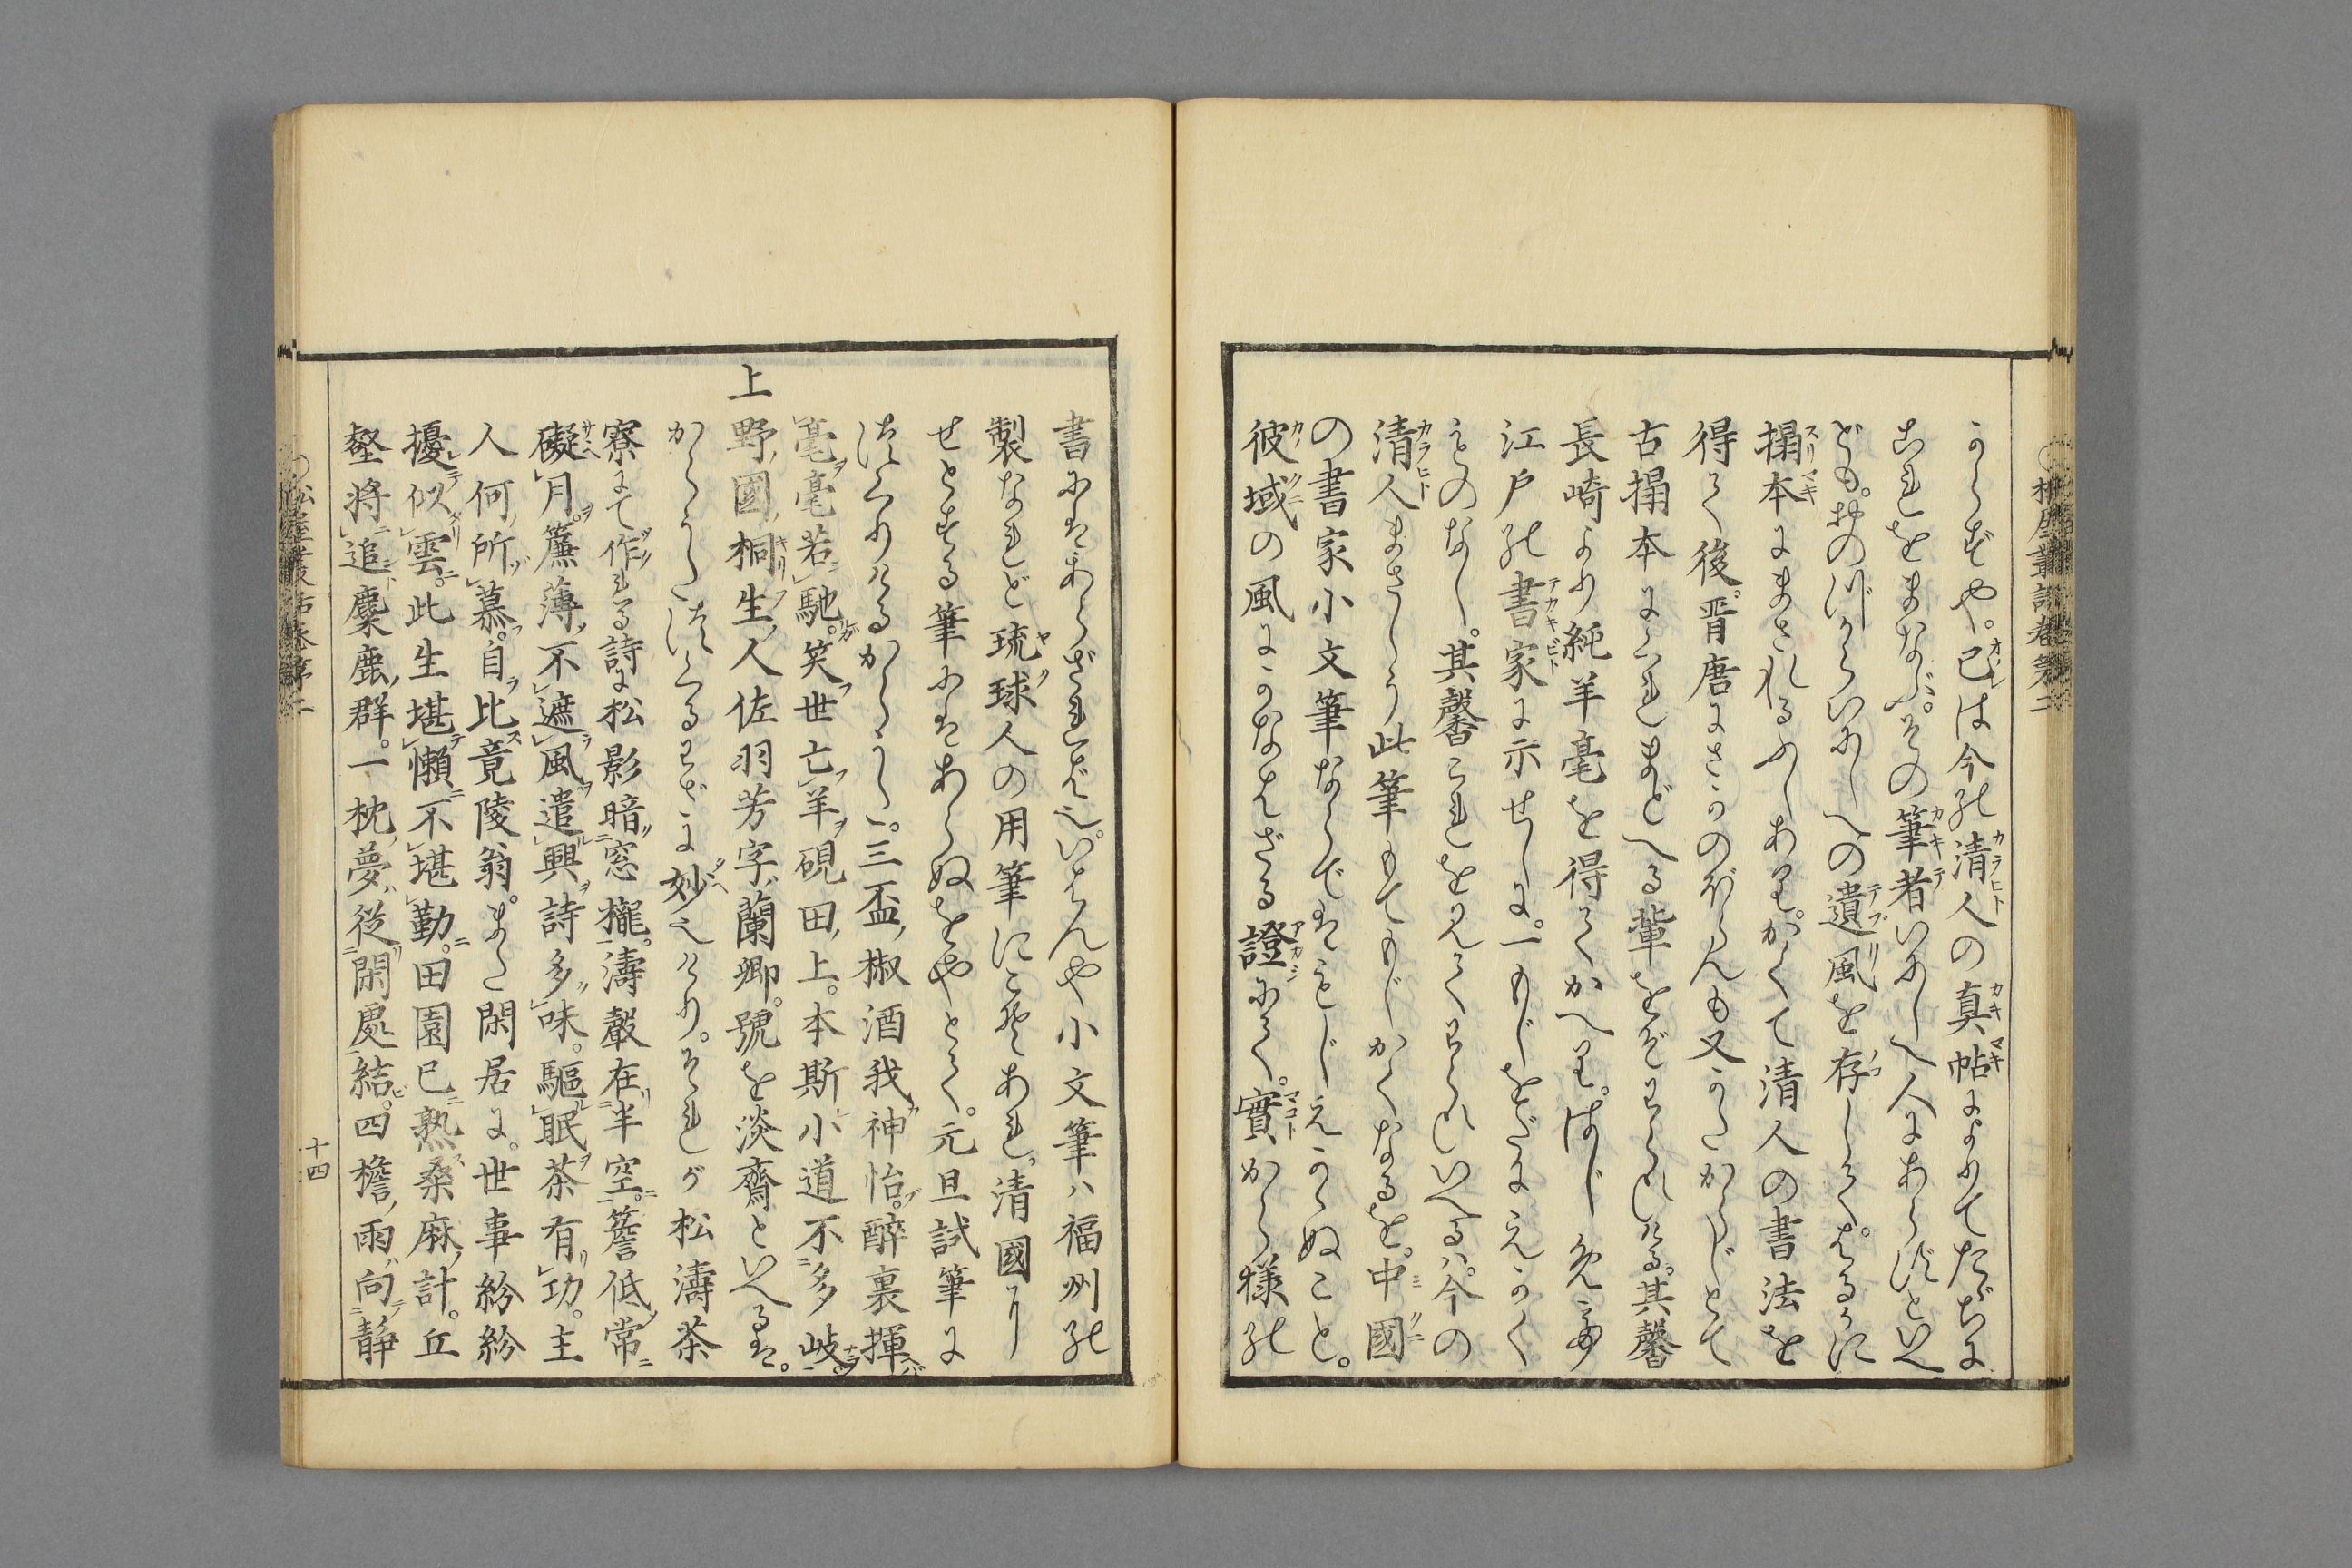 からずや。己は今の清人の真帖によりてたゞに
これをまなぶ。その筆者いにしへ人にあらずといへ
ども。おのづからいにしへの遺風を存しして。はるかに
搨本にまされるふしあり。かくて清人の書法を
得て後。晋唐にさかのぼらんも又かたからじとて
古搨本にくれまどへる輩をぞわらひける。其馨
長崎より純羊毫を得てかへり。はじめ
江戸の書家に示せしに。一もじをだにえかく
ものなし。其馨これを見てわらひいへるハ。今の
清人まさしう此筆もてもじかくなるを。中國
の書家小文筆ならではもじえかゝぬこと。
彼域の風にかなはざる證にて。實から様の
書にはあらざればなり。いはんや小文筆ハ福州の
製なれど琉球人の用筆にこそあれ。清國より
せとする筆にはあらぬをやとて。元旦試筆に
つくりけるからうた。三盃椒酒我神怡。醉裏揮
毫毫若馳。笑世亡羊硯田上。本斯小道不多岐
上野國桐生人佐羽芳字蘭卿。號を淡齋といへるは。
からうたつくるわざに妙也けり。それが松濤茶
寮にて作れる詩に松影暗窓櫳。濤聲在半空。簷低常
礙月。簾薄不遮風。遣興詩多味。驅眠茶有功。主
人何所慕。自比竟陵翁。また閑居に。世事紛紛
擾似雲。此生堪懶不堪勤。田園已熟桑麻計。丘
壑將追麋鹿群。一枕夢從閑處結。四檐雨向靜
十四